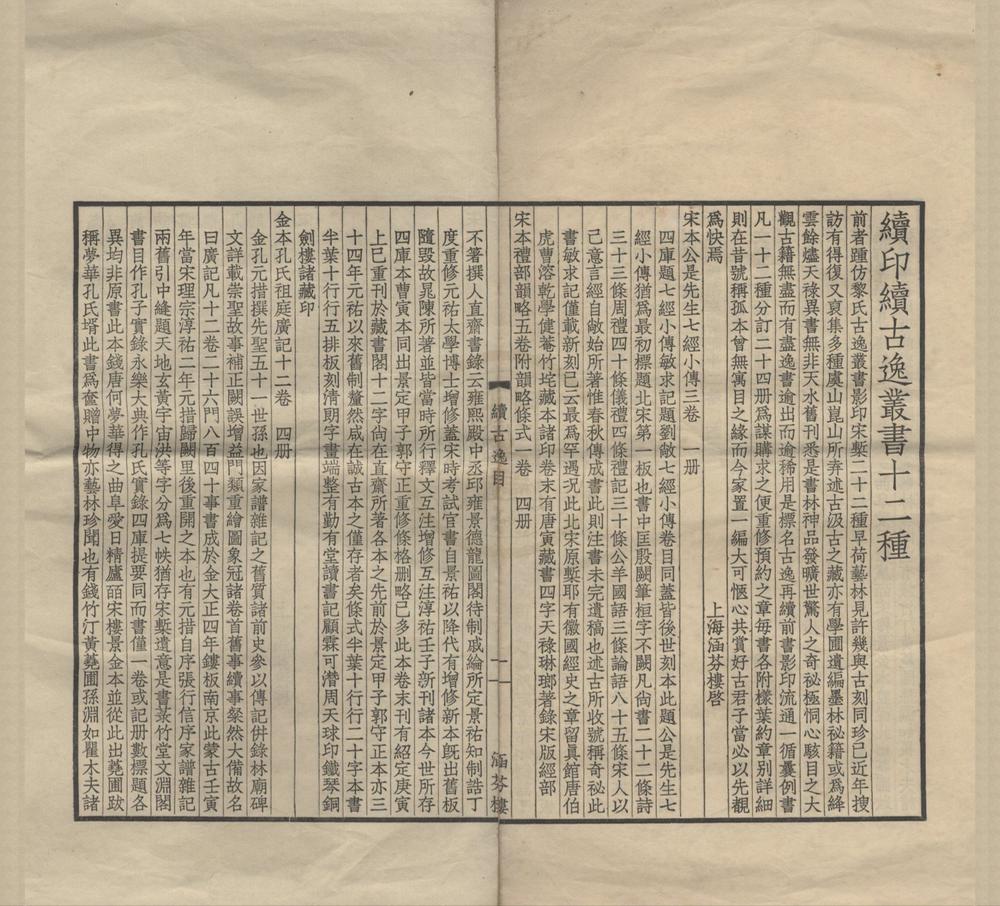 續印續古逸叢書十二種
前者踵仿黎氏古逸叢書影印宋槧二十二種早荷藝林見許幾與古刻同珍已近年搜
訪有得復又裒集多種虞山崑山所弆述古汲古之藏亦有學圃遺編墨林秘籍或爲絳
雲餘燼天祿異書無非天水舊刊悉是書林神品發曠世驚人之奇祕極恫心駭目之大
觀古籍無盡而有盡逸書逾出而逾稀用是標名古逸再續前書影印流通一循曩例書
凡一十二種分訂二十四册爲謀購求之便重修預約之章每書各附樣葉約章別詳細
則在昔號稱孤本曾無寓目之緣而今家置一編大可愜心共賞好古君子當必以先覩
爲快焉　上海涵芬樓啓
宋本公是先生七經小傳三卷　一册
四庫題七經小傳敏求記題劉敞七經小傳卷目同蓋皆後世刻本此題公是先生七
經小傳猶爲最初標題北宋第一板也書中匡殷闕筆桓字不闕凡尙書二十二條詩
三十三條周禮四十條儀禮四條禮記三十條公羊國語三條論語八十五條宋人以
己意言經自敞始所著惟春秋傳成書此則注書未完遺稿也述古所收號稱奇秘此
書敏求記僅載新刻已云最爲罕遇况此北宋原槧耶有徽國經史之章留眞館唐伯
虎曹溶乾學健菴竹垞藏本諸印卷末有唐寅藏書四字天祿琳瑯著錄宋版經部
宋本禮部韻略五卷附韻略條式一卷　四册
續古逸目　一　涵芬樓
不箸撰人直齋書錄云雍熙殿中丞邱雍景德龍圖閣待制戚綸所定景祐知制誥丁
度重修元祐太學博士增修蓋宋時考試官書自景祐以降代有增修新本旣出舊板
隨毀故晁陳所著並皆當時所行釋文互注增修互注淳祐壬子新刊諸本今世所存
四庫本曹寅本同出景定甲子郭守正重修條格刪略已多此本卷末刊有紹定庚寅
上已重刊於藏書閣十二字尙在直齋所著各本之先前於景定甲子郭守正本亦三
十四年元祐以來舊制釐然咸在誠古本之僅存者矣條式半葉十行行二十字本書
半葉十行行五排板刻淸朗字畫端整有勤有堂讀書記顧霖可潛周天球印鐵琴銅
劍樓諸藏印
金本孔氏祖庭廣記十二卷　四册
金孔元措撰先聖五十一世孫也因家譜雜記之舊質諸前史參以傳記倂錄林廟碑
文詳載崇聖故事補正闕誤增益門類重繪圖象冠諸卷首舊事續事粲然大備故名
曰廣記凡十二卷二十六門八百四十事書成於金大正四年鏤板南京此蒙古壬寅
年當宋理宗淳祐二年元措歸闕里後重開之本也有元措自序張行信序家譜雜記
兩舊引中縫題天地玄黃宇宙洪等字分爲七帙猶存宋槧遺意是書菉竹堂文淵閣
書目作孔子實錄永樂大典作孔氏實錄四庫提要同而書僅一卷或記册數標題各
異均非原書此本錢唐何夢華得之曲阜愛日精廬皕宋樓景金本並從此出蕘圃跋
稱夢華孔氏壻此書爲奩贈中物亦藝林珍聞也有錢竹汀黃蕘圃孫淵如瞿木夫諸